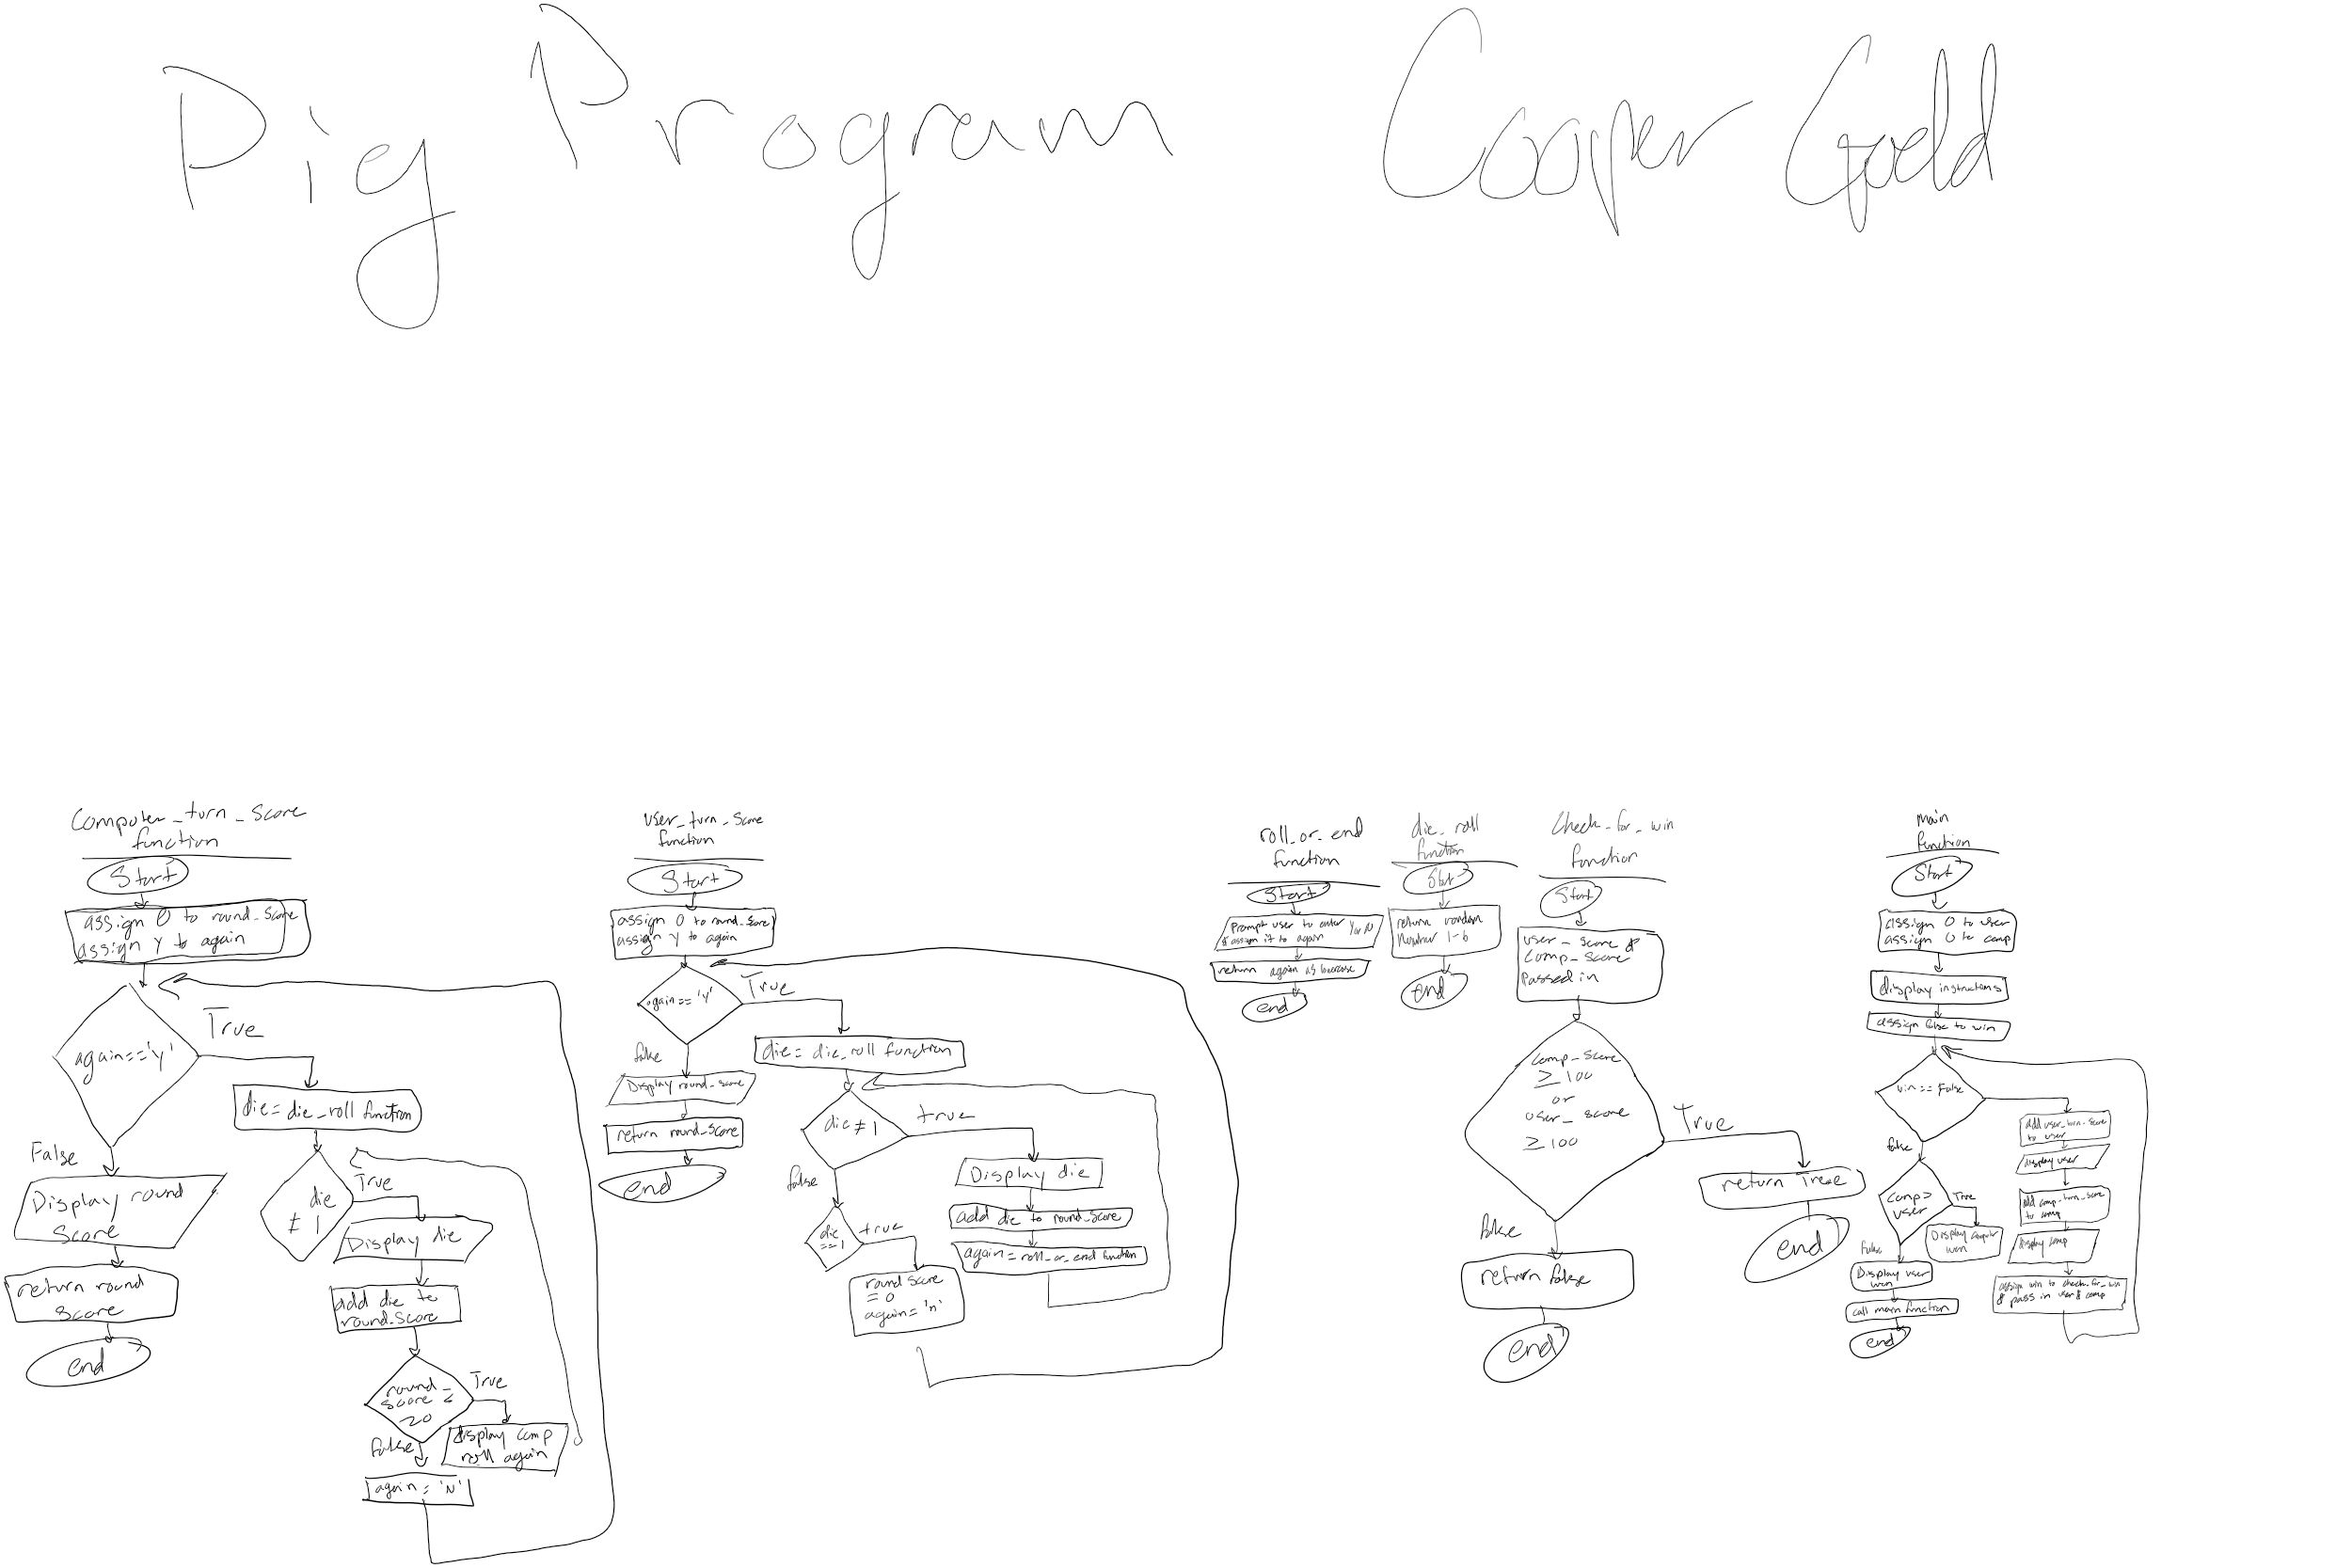 Pig Program Cooper Gold
Computer_turn_score
function
Start
assign 0 to round_score
assign y to again
again=='y'
True
False
Display round
Score
return round
score
end
die=die_roll function
die
≠ 1
True
Display die
add die to
round_score
round_
score ≤
20
True
display comp
roll again
false
again = 'N'
User_turn_score
function
Start
assign 0 to round_score
assign y to again
again=='y'
True
false
Display round_score
return round_score
end
die= die_roll function
die ≠ 1
true
Display die
add die to round_score
again = roll_or_end function
false
die
==1
true
round score
= 0
again='n'
roll_or_end
function
Start
Prompt user to enter Y or N
& assign it to again
return again as lowercase
end
die_roll
function
Start
return random
Number 1-6
end
Check_for_win
function
Start
user_score &
Comp_score
Passed in
Comp_score
≥ 100
or
user_score
≥ 100
True
return True
end
false
return false
end
main
function
Start
assign 0 to user
assign 0 to comp
display instructions
assign false to win
win == False
add user_turn_score
to user
Display user
add comp_turn_score
to comp
Display comp
assign win to check_for_win
& pass in user & comp
false
Comp>
user
True
Display computer
won
False
Display user
won
call main function
end